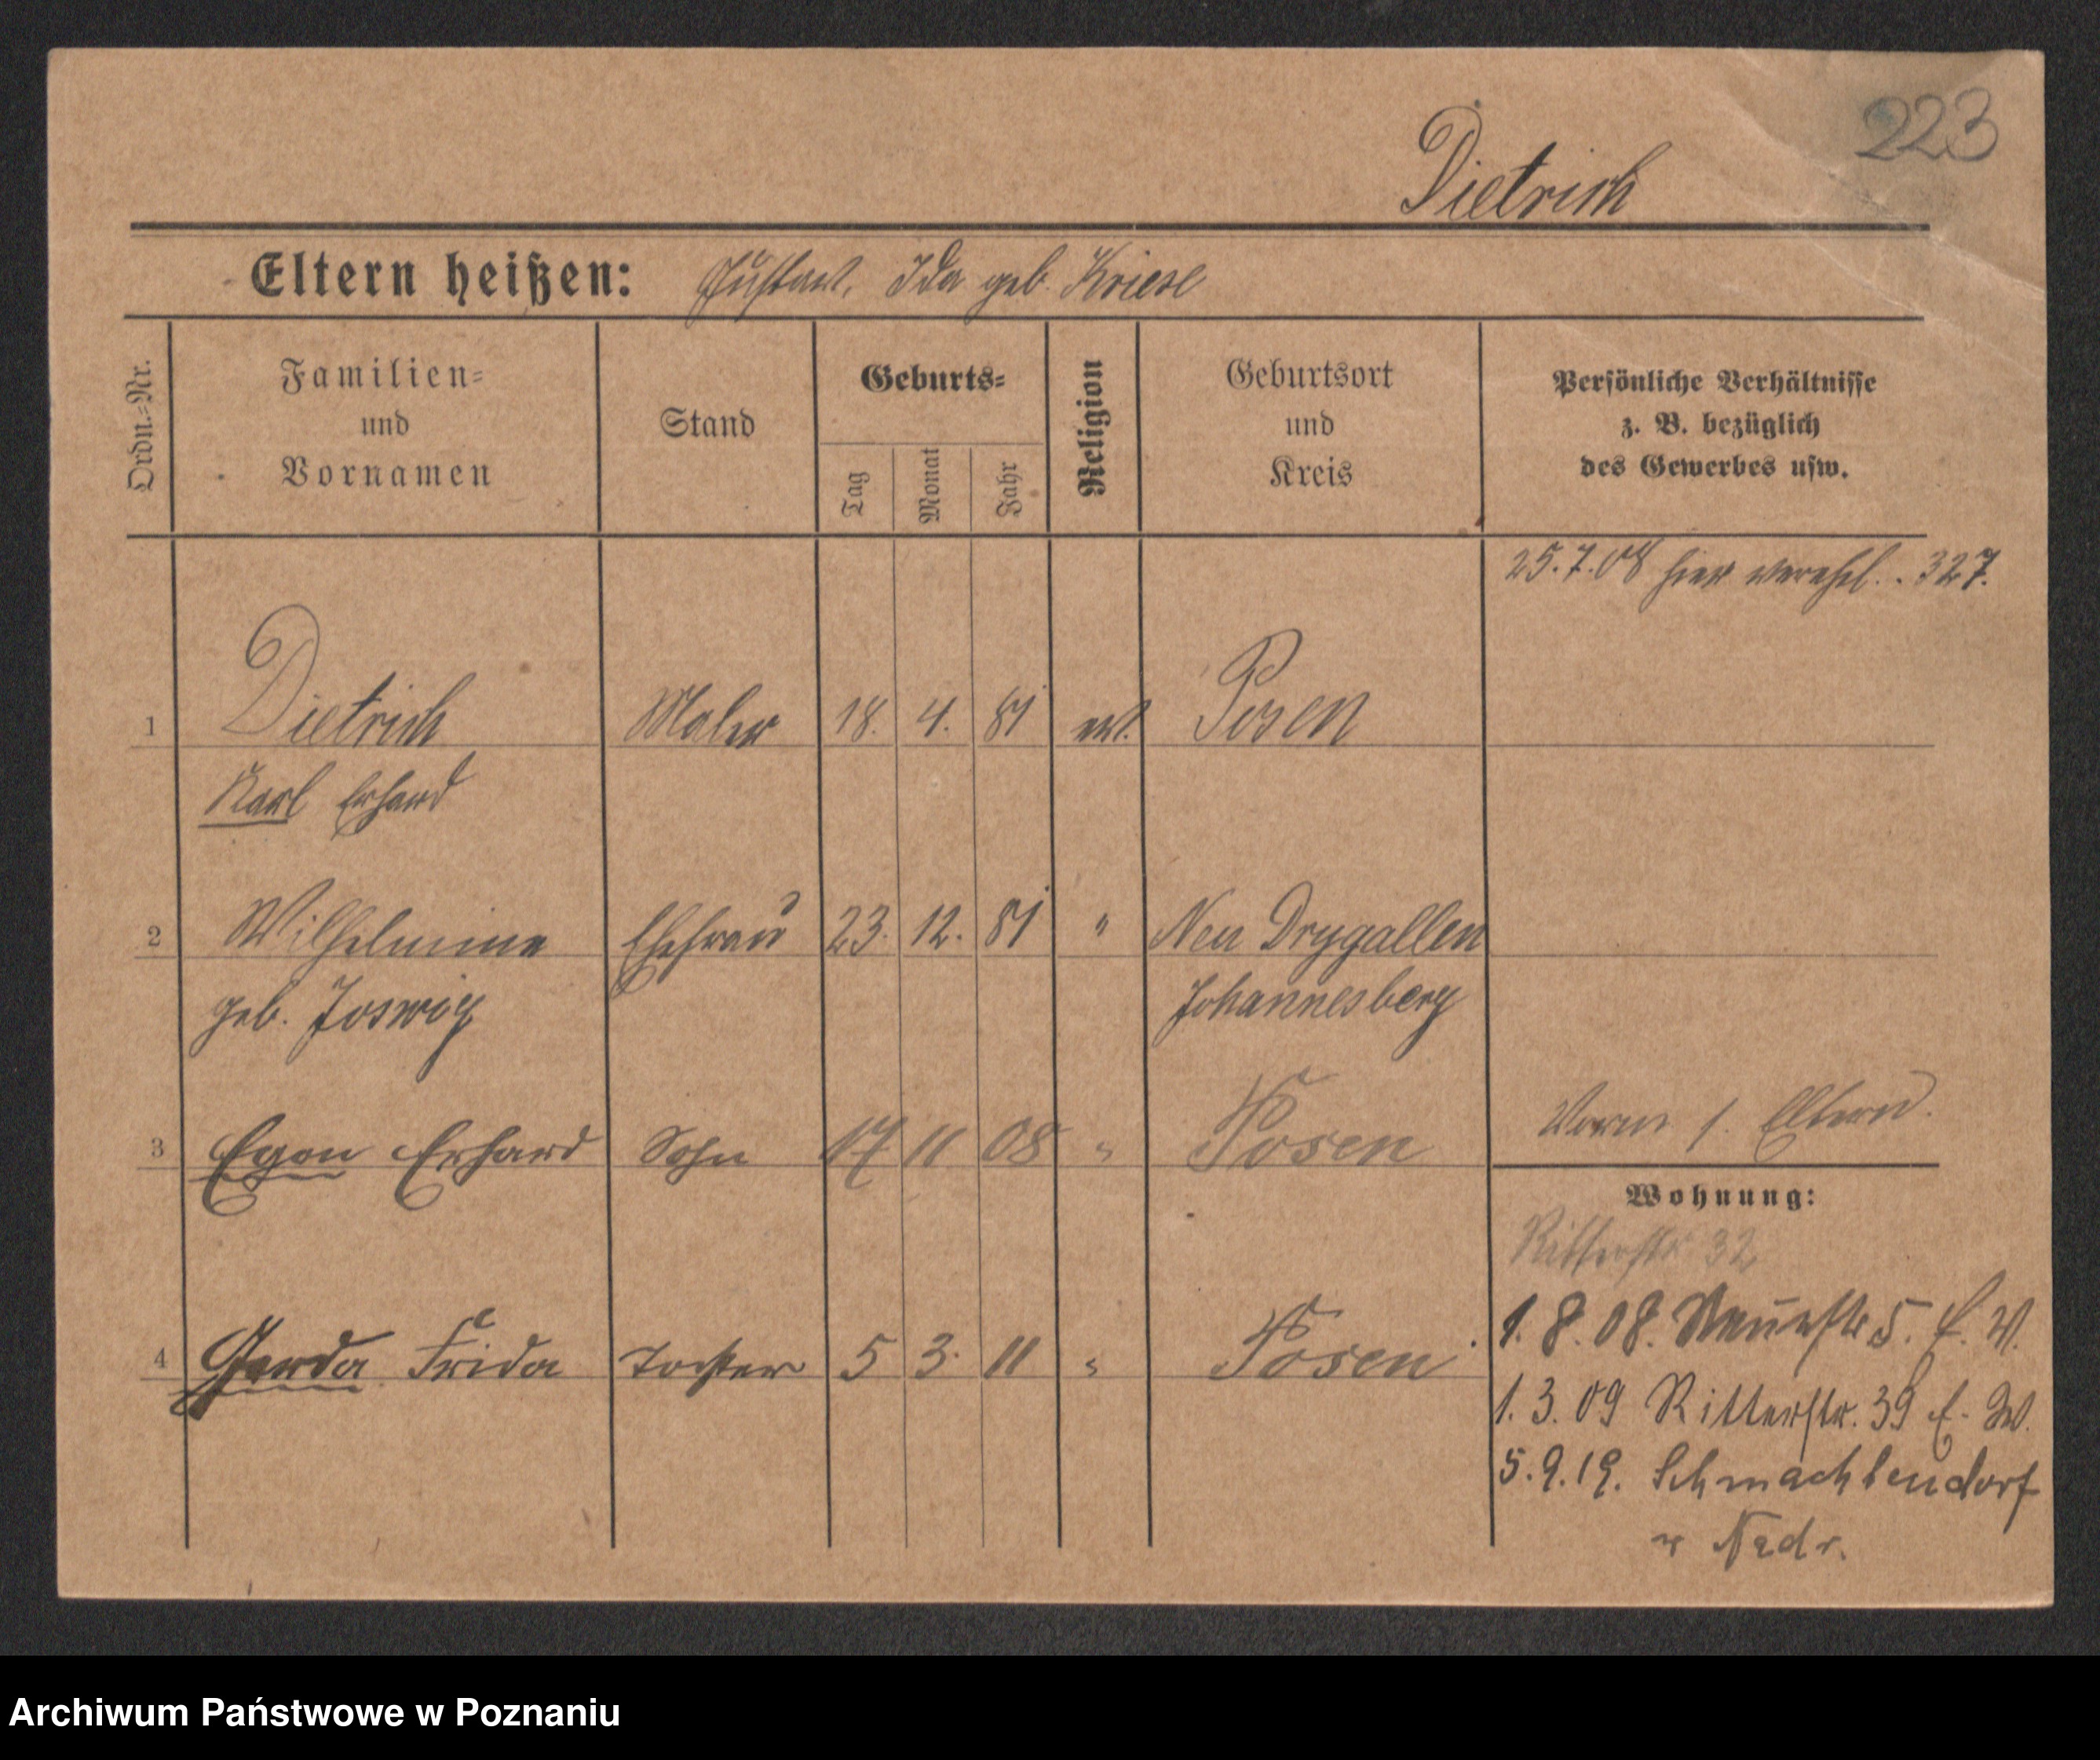 223
Dietrich
Eltern heißen: Gustav, Ida geb. Kriese
Ordn.-Nr.
Familien-
und
Vornamen
Stand
Geburts-
Tag
Monat
Jahr
Religion
Geburtsort
und
Kreis
Persönliche Verhältnisse
z. B. bezüglich
des Gewerbes usw.
25.7.08 hier verehel. . 327.
1 Dietrich Maler 18. 4. 81 ev. Posen
Karl Erhard
2 Wilhelmine Ehefrau 23. 12. 81 " Neu Drygallen
geb. Joswig Johannesberg
3 Egon Erhard Sohn 17 11 08 " Posen
Vorm 1. Eltern.
Wohnung:
Ritterstr 32
4 Gerda Frida Tochter 5 3. 11 " Posen
1. 8. 08. 5. E. W.
1. 3. 09 Ritterstr. 39 E. W.
5. 9. 19. Schmachtendorf
Nedr.
Archiwum Państwowe w Poznaniu